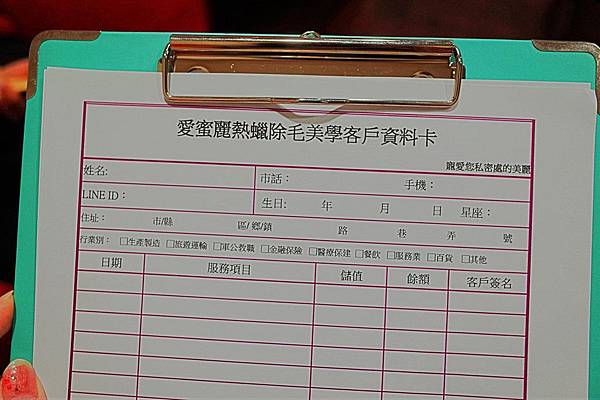 愛蜜麗熱蠟除毛美學客戶資料卡
寵愛您私密處的美麗
姓名: 市話： 手機：
LINE ID： 生日: 年 月 日 星座：
住址： 市/縣 區/鄉/鎮 路 巷 弄 號
行業別： □生產製造 □旅遊運輸 □軍公教職 □金融保險 □醫療保建 □餐飲 □服務業 □百貨 □其他
日期 服務項目 儲值 餘額 客戶簽名